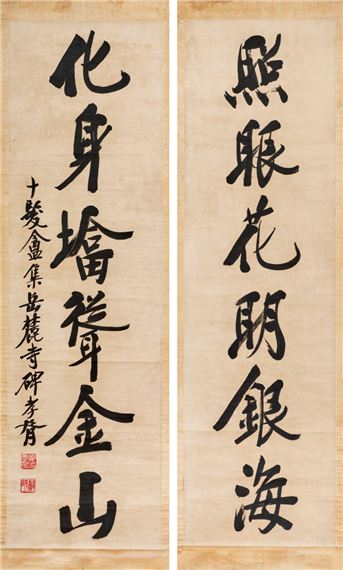 照眼花明銀海
化身墖聳金山
十髮盦集岳麓寺碑孝胥